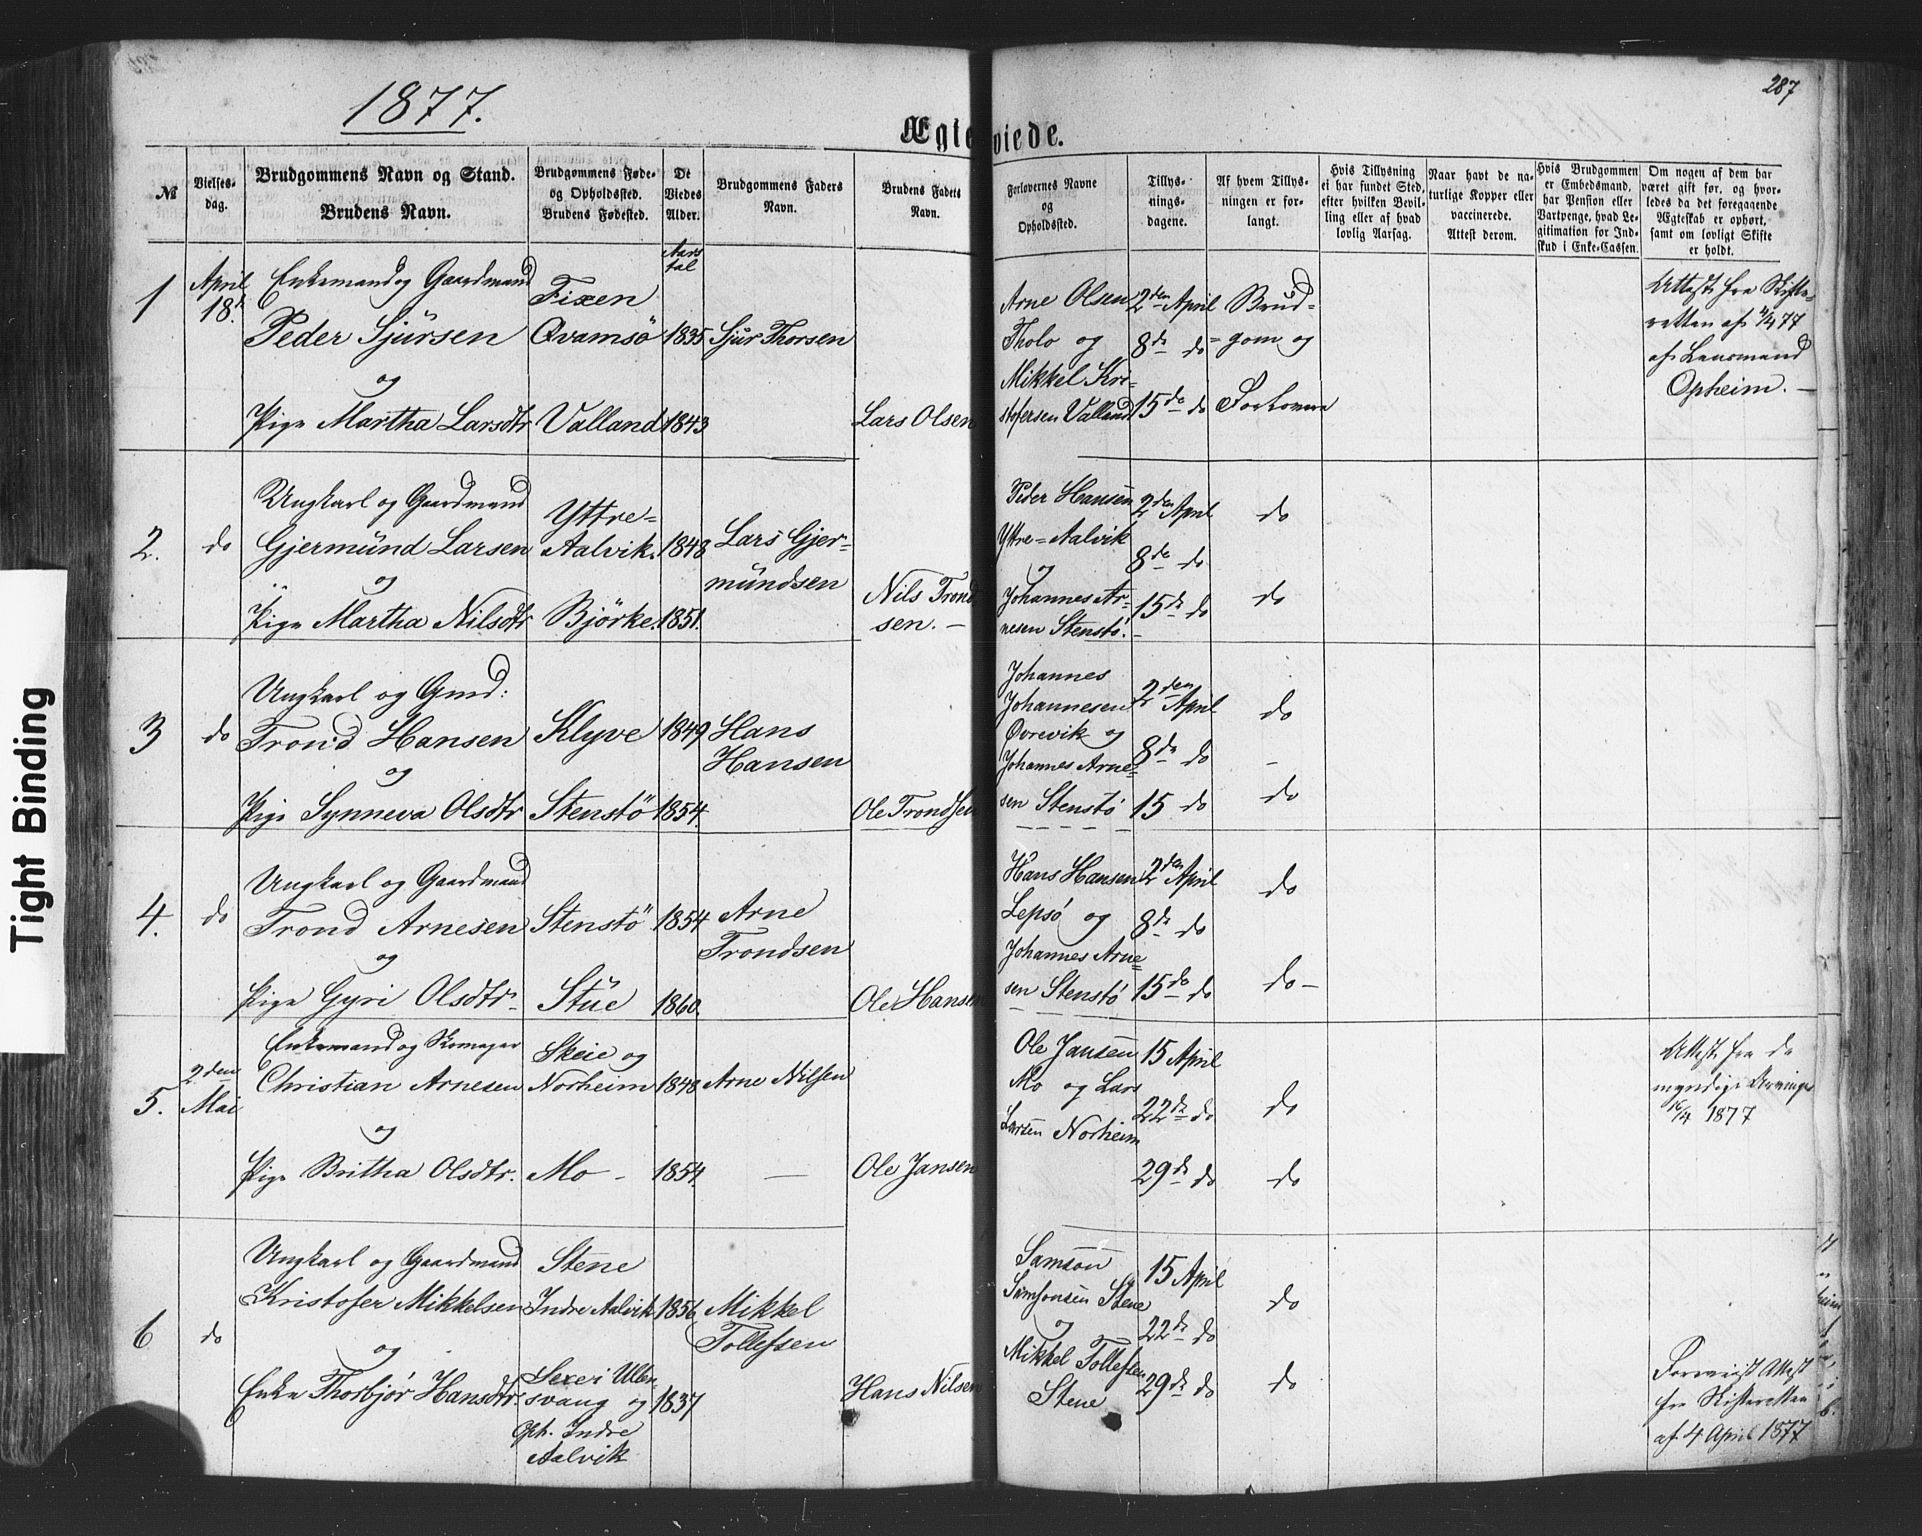 287
1877.
Ægteviede.
№
Vielses-
dag.
Brudgommens Navn og Stand.
Brudens Navn.
Brudgommens Føde-
og Opholdssted.
Brudens Fødested.
De
Viedes
Alder.
Brudgommens Faders
Navn.
Brudens Faders
Navn.
Forlovernes Navne
og
Opholdssted.
Tillys-
nings-
dagene.
Af hvem Tillys-
ningen er for-
langt.
Hvis Tillysning
ei har fundet Sted,
efter hvilken Bevil-
ling eller af hvad
lovlig Aarsag.
Naar havt de na-
turlige Kopper eller
vaccinerede.
Attest derom.
Hvis Brudgommen
er Embedsmand,
har Pension eller
Vartpenge, hvad Le-
gitimation for Ind-
skud i Enke-Cassen.
Om nogen af dem har
været gift før, og hvor-
ledes da det foregaaende
Ægteskab er ophørt,
samt om lovligt Skifte
er holdt.
Aars
tal
1
April
18.
Enkemand og Gaardmand
Peder Sjürsen
og
Pige Martha Larsdtr
Fixen
Qvamsö
Valland
1835
1843
Sjür Thorsen
Lars Olsen
Arne Olsen
Tholo og
Mikkel Kri-
stofersen Valland
2den April
8de do
15de do
Brüd-
=gom og
Forlovere
Attest fra Skifte-
retten af 4/4 77
af Lensmand
Opheim. —
2.
do
Ungkarl og Gaardmand
Gjermünd Larsen
og
Pige Martha Nilsdtr
Yttre=
Aalvik.
Bjørke.
1848
1851.
Lars Gjer=
mündsen
Nils Trond
sen. —
Peder Hansen
Yttre=Aalvik
og
Johannes Ar=
nesen Stenstö.
2den April
8de do
15de do
do
do
3
do
Ungkarl og Gmd:
Trond Hansen
og
Pige Synneva Olsdtr
Klyve
Stenstö
1849
1854.
Hans
Hansen
Ole Trondsen
Johannes
Johannesen
Övrevik og
Johannes Arne=
sen Stenstö
2den April
8de do
15 do
do
do
4.
do
Ungkarl og Gaardmand
Trond Arnesen
og
Pige Gyri Olsdtr
Stenstö
Stüe
1854
1860.
Arne
Trondsen
Ole Hansen
Hans Hansen
Lepsö og
Johannes Arne=
sen Stenstö
2den April
8de do
15de do
do
do —
5.
2den
Mai
Enkemand og Skomager
Christian Arnesen
og
Pige Britha Olsdtr.
Skeie og
Norheim
Mo —
1848
1854.
Arne Nilsen
—
Ole Jansen
Ole Jansen
Mo og Lars
Larsen Norheim
15 April
22de do
29de do
do
do
Attest fra de
myndige Arvinger
16/4 1877
6
do
Ungkarl og Gaardmand
Kristofer Mikkelsen
og
Enke Thorbjör Hansdtr.
Stene
Indre Aalvik
Sexe i Ullen-
svang og
Oph. Indre
Aalvik
1856
1837
Mikkel
Tollefsen
Hans Nilsen
Samson
Simsonsen Stene
og
Mikkel Tollefsen
Stene
15 April
22de do
29de do
do
do
Forevist Attest
fra Skifteretten
af 4 April 1877
Tight Binding